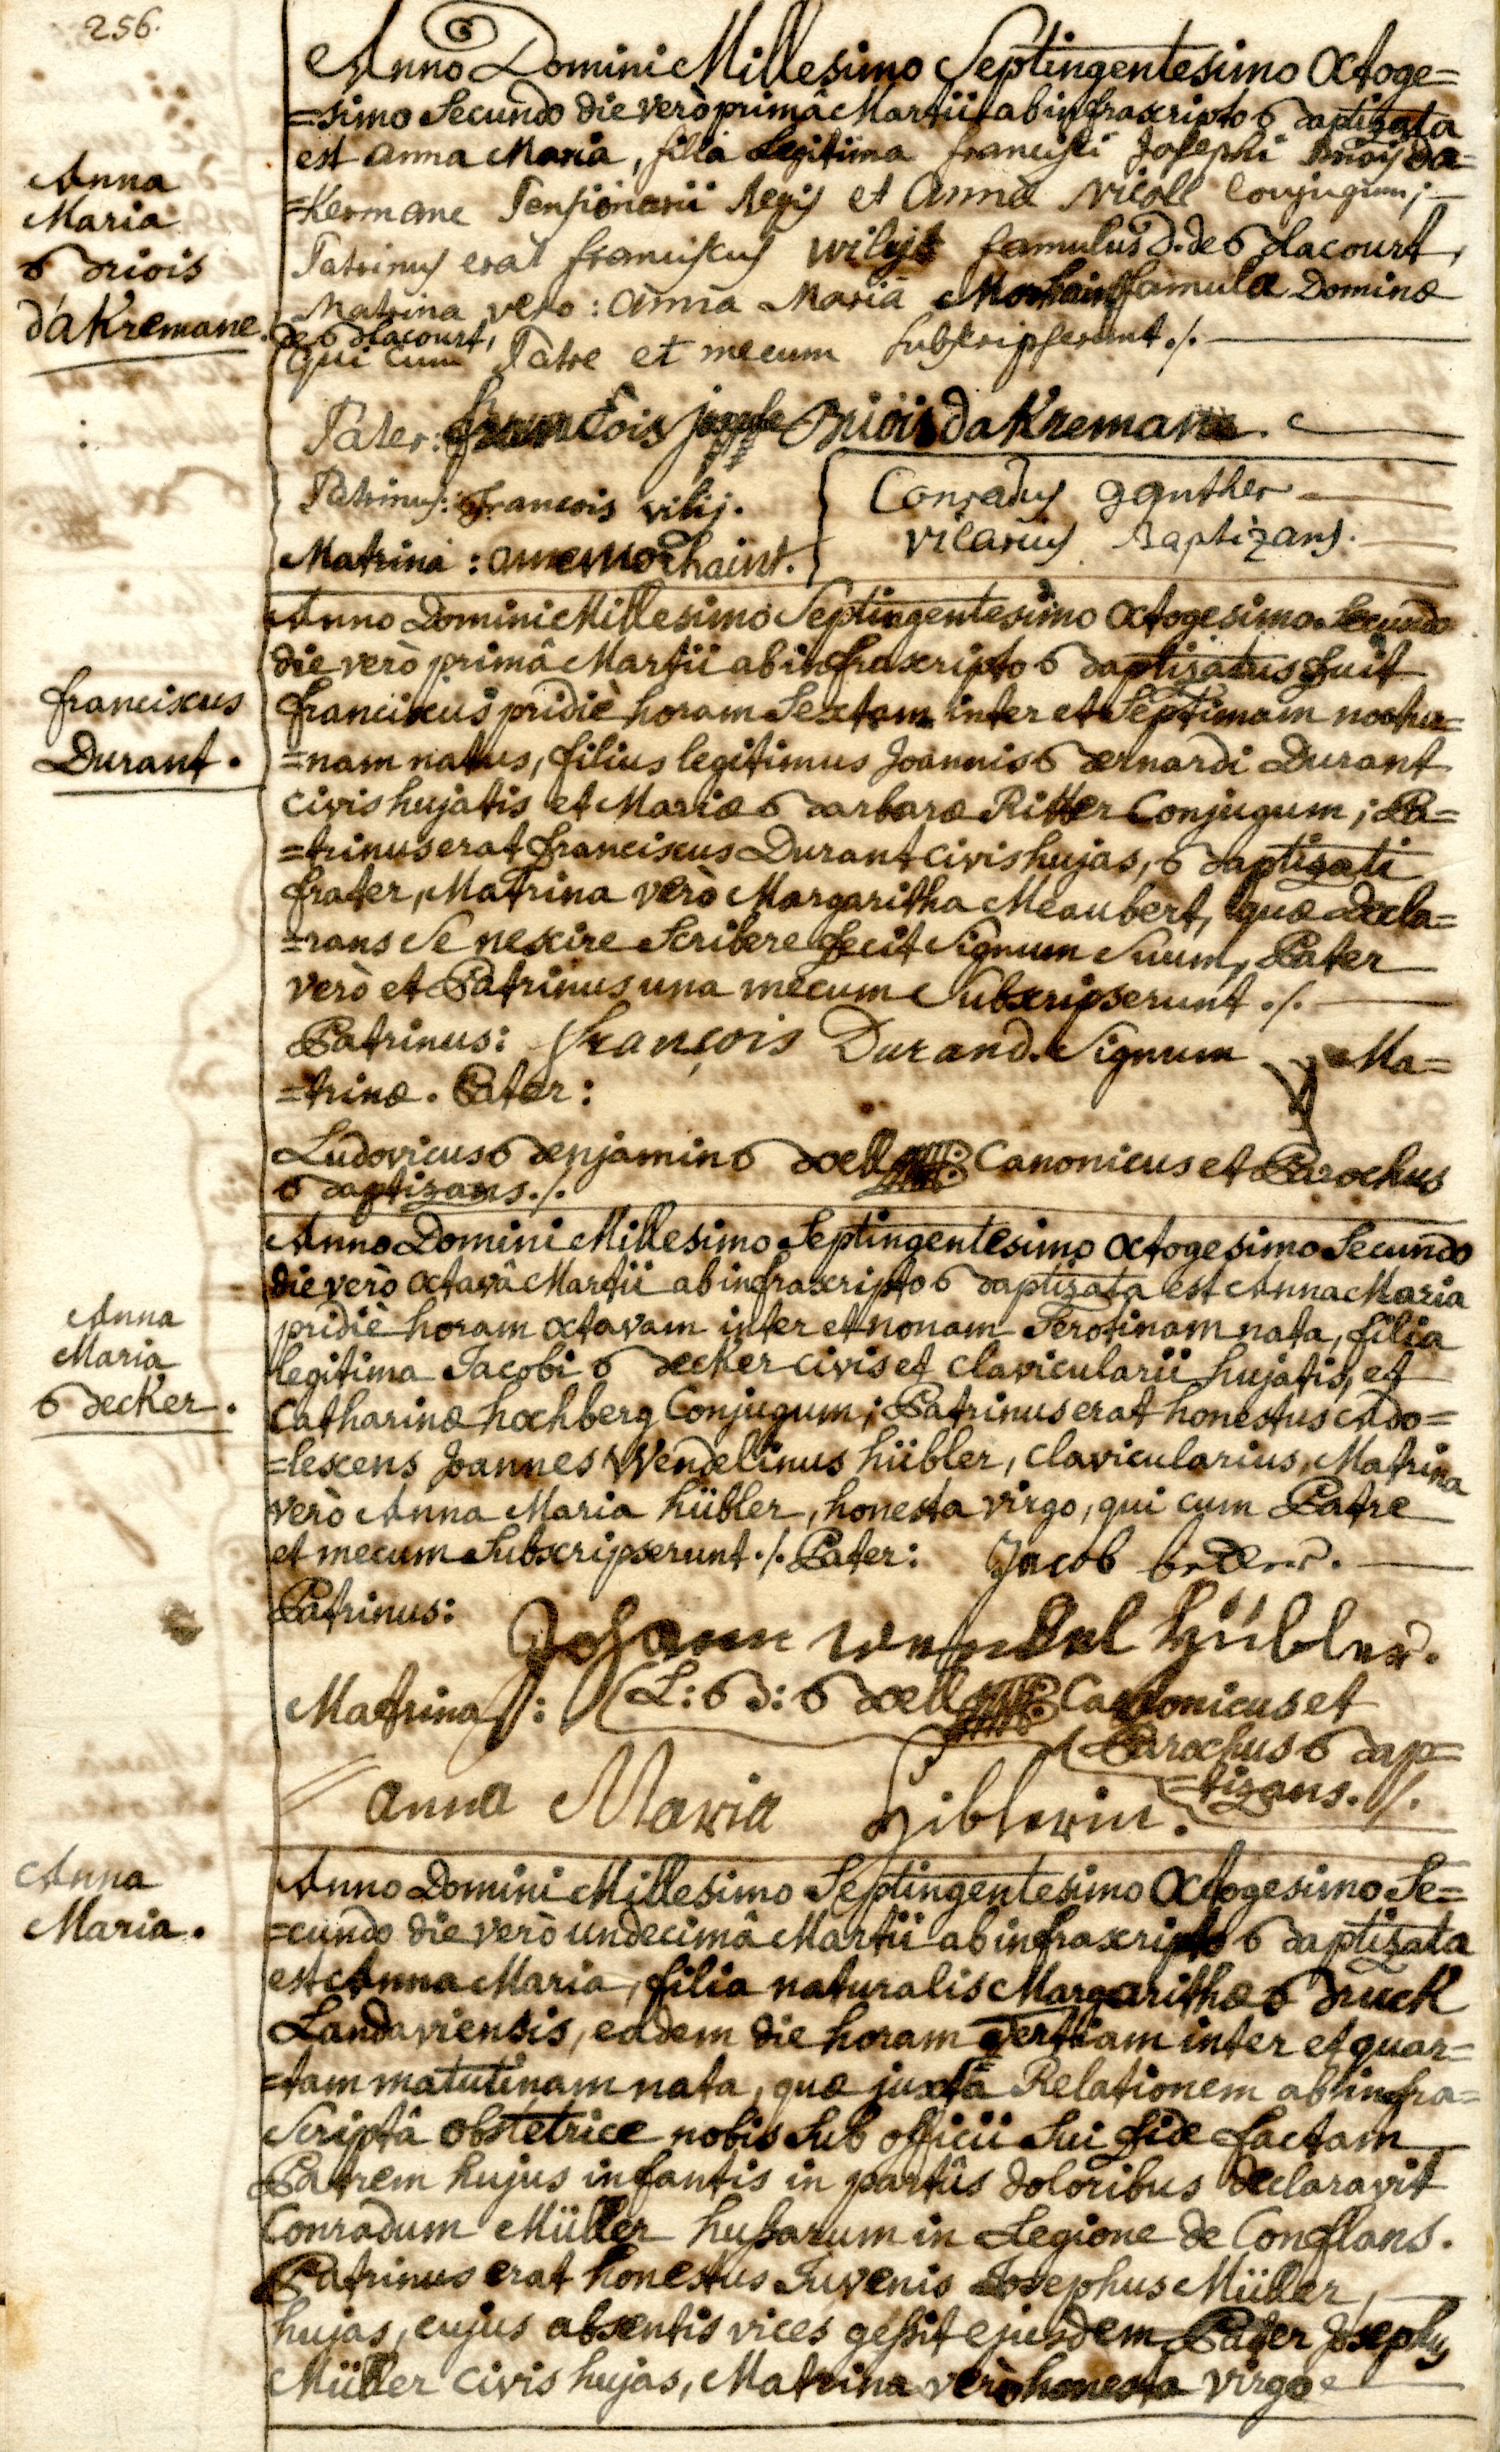 256.
Anno Domini Millesimo Septingentesimo Octoge=
=simo Secundo die verò primâ Martii ab infrascripto Baptizata
est anna Maria, filia Legitima francisci Josephi Briois da=
=Kermane Pensionarii Regis et Annæ Nicoll Conjugum;
Patrinus erat franciscus wilijs famulus D. de Blacourt,
Matrina vero: anna Maria Morhain famula Dominæ
de Blacourt,
qui cum Patre et mecum Subscripserunt ./.
Anna
Maria
Briois
da Kremane.
Pater: francois josephe Briois da Kremane.
Patrinus: francois vilij.
Matrina: anne morhaint.
Conradus Ganther
vicarius Baptizans.
Anno Domini Millesimo Septingentesimo Octogesimo Secundo
die verò primâ Martii ab infrascripto Baptizatus fuit
franciscus pridiè horam Sextam inter et Septimam noctur=
=nam natus, filius legitimus Joannis Bernardi Durant
civis hujatis et Mariæ Barbaræ Ritter Conjugum; Pa=
=trinus erat franciscus Durant civis hujas, Baptizati
frater, Matrina verò Margaritha Meaubert, quæ decla=
=rans Se nescire Scribere fecit Signum Suum, Pater
verò et Patrinus una mecum Subscripserunt ./.
franciscus
Durant.
Patrinus: françois Durand. Signum Ma=
=trinæ. Pater:
Ludovicus Benjamin Boell Canonicus et Parochus
Baptizans ./.
Anno Domini Millesimo Septingentesimo Octogesimo Secundo
die verò octavâ Martii ab infrascripto Baptizata est Anna Maria
pridiè horam octavam inter et nonam Serotinam nata, filia
legitima Jacobi Becker civis et clavicularii hujatis, et
Catharinæ hochberg Conjugum; Patrinus erat honestus ado=
=lescens Joannes Wendelinus hübler, clavicularius, Matrina
verò Anna Maria hübler, honesta virgo, qui cum Patre
et mecum Subscripserunt ./. Pater: Jacob
Anna
Maria
Becker.
Patrinus: Johann wendel hübler.
Matrina: L: B: Boell Canonicus et
Parochus Bap=
=tizans. ./.
anna Maria Hiblerin.
Anno Domini Millesimo Septingentesimo Octogesimo Se=
=cundo die verò undecimâ Martii ab infrascripto Baptizata
est Anna Maria, filia naturalis Margarithæ Bruck
Landaviensis, eadem die horam Tertiam inter et quar=
=tam matutinam nata, quæ juxta Relationem ab infra=
Scriptâ obstetrice nobis Sub officii Sui fide factam
Patrem hujus infantis in partûs doloribus declaravit
Conradum Müller hußarum in Legione de Conflans.
Patrinus erat honestus Juvenis Josephus Müller,
hujas, cujus absentis vices geßit ejusdem Pater Josephus
Müller civis hujas, Matrina verò honesta virgo
Anna
Maria.